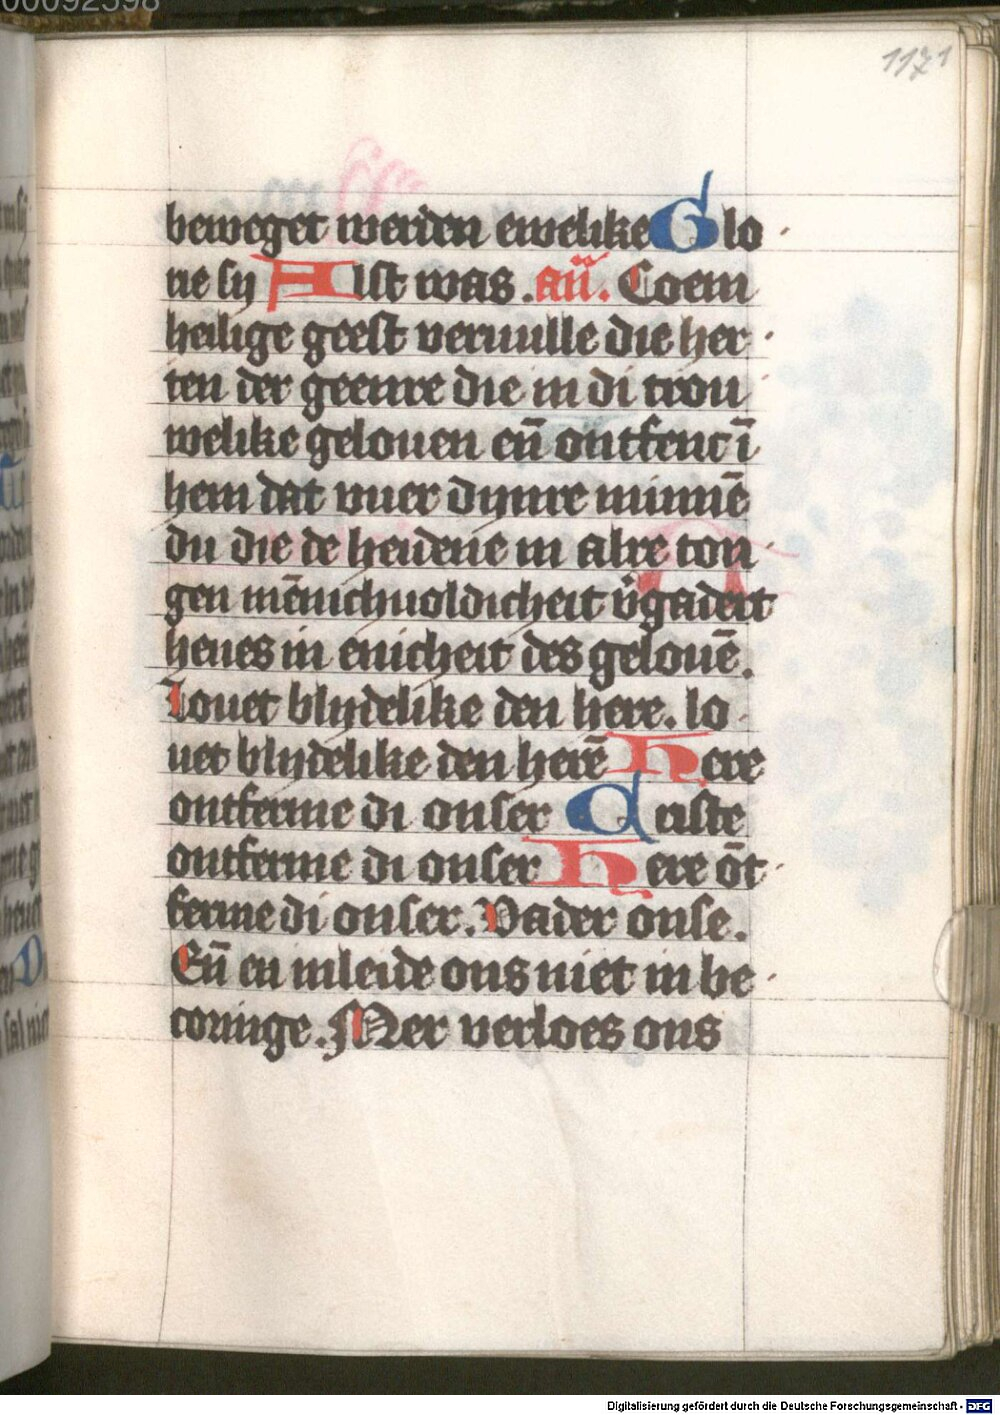 00092598
1171
beweget werden ewelike Glo
rie sy Alst was. an̄. Coem
heilige geest veruulle die her
ten der geenre die in di trou
welike gelouen en̄ ontfenct ī
hem dat vuer dynre minnē
du die de heidene in alre ton
gen mēnichuoldicheit v̄gadert
heues in enicheit des gelouē.
Louet blydelike den here. lo
uet blydelike den herē Here
ontferme di onser Criste
ontferme di onser Here ōt
ferme di onser. Vader onse.
En̄ en inleide ons niet in be
coringe. Mer verloes ons
Digitalisierung gefördert durch die Deutsche Forschungsgemeinschaft - DFG